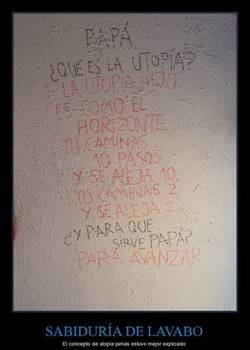 PAPÁ
¿QUÉ ES LA UTOPÍA?
LA UTOPÍA HIJO
ES COMO EL
HORIZONTE
TU CAMINAS
10 PASOS
Y SE ALEJA 10,
TU CAMINAS 2
Y SE ALEJA 2
¿Y PARA QUE
SIRVE PAPÁ?
PARA AVANZAR
SABIDURÍA DE LAVABO
El concepto de utopía jamás estuvo mejor explicado